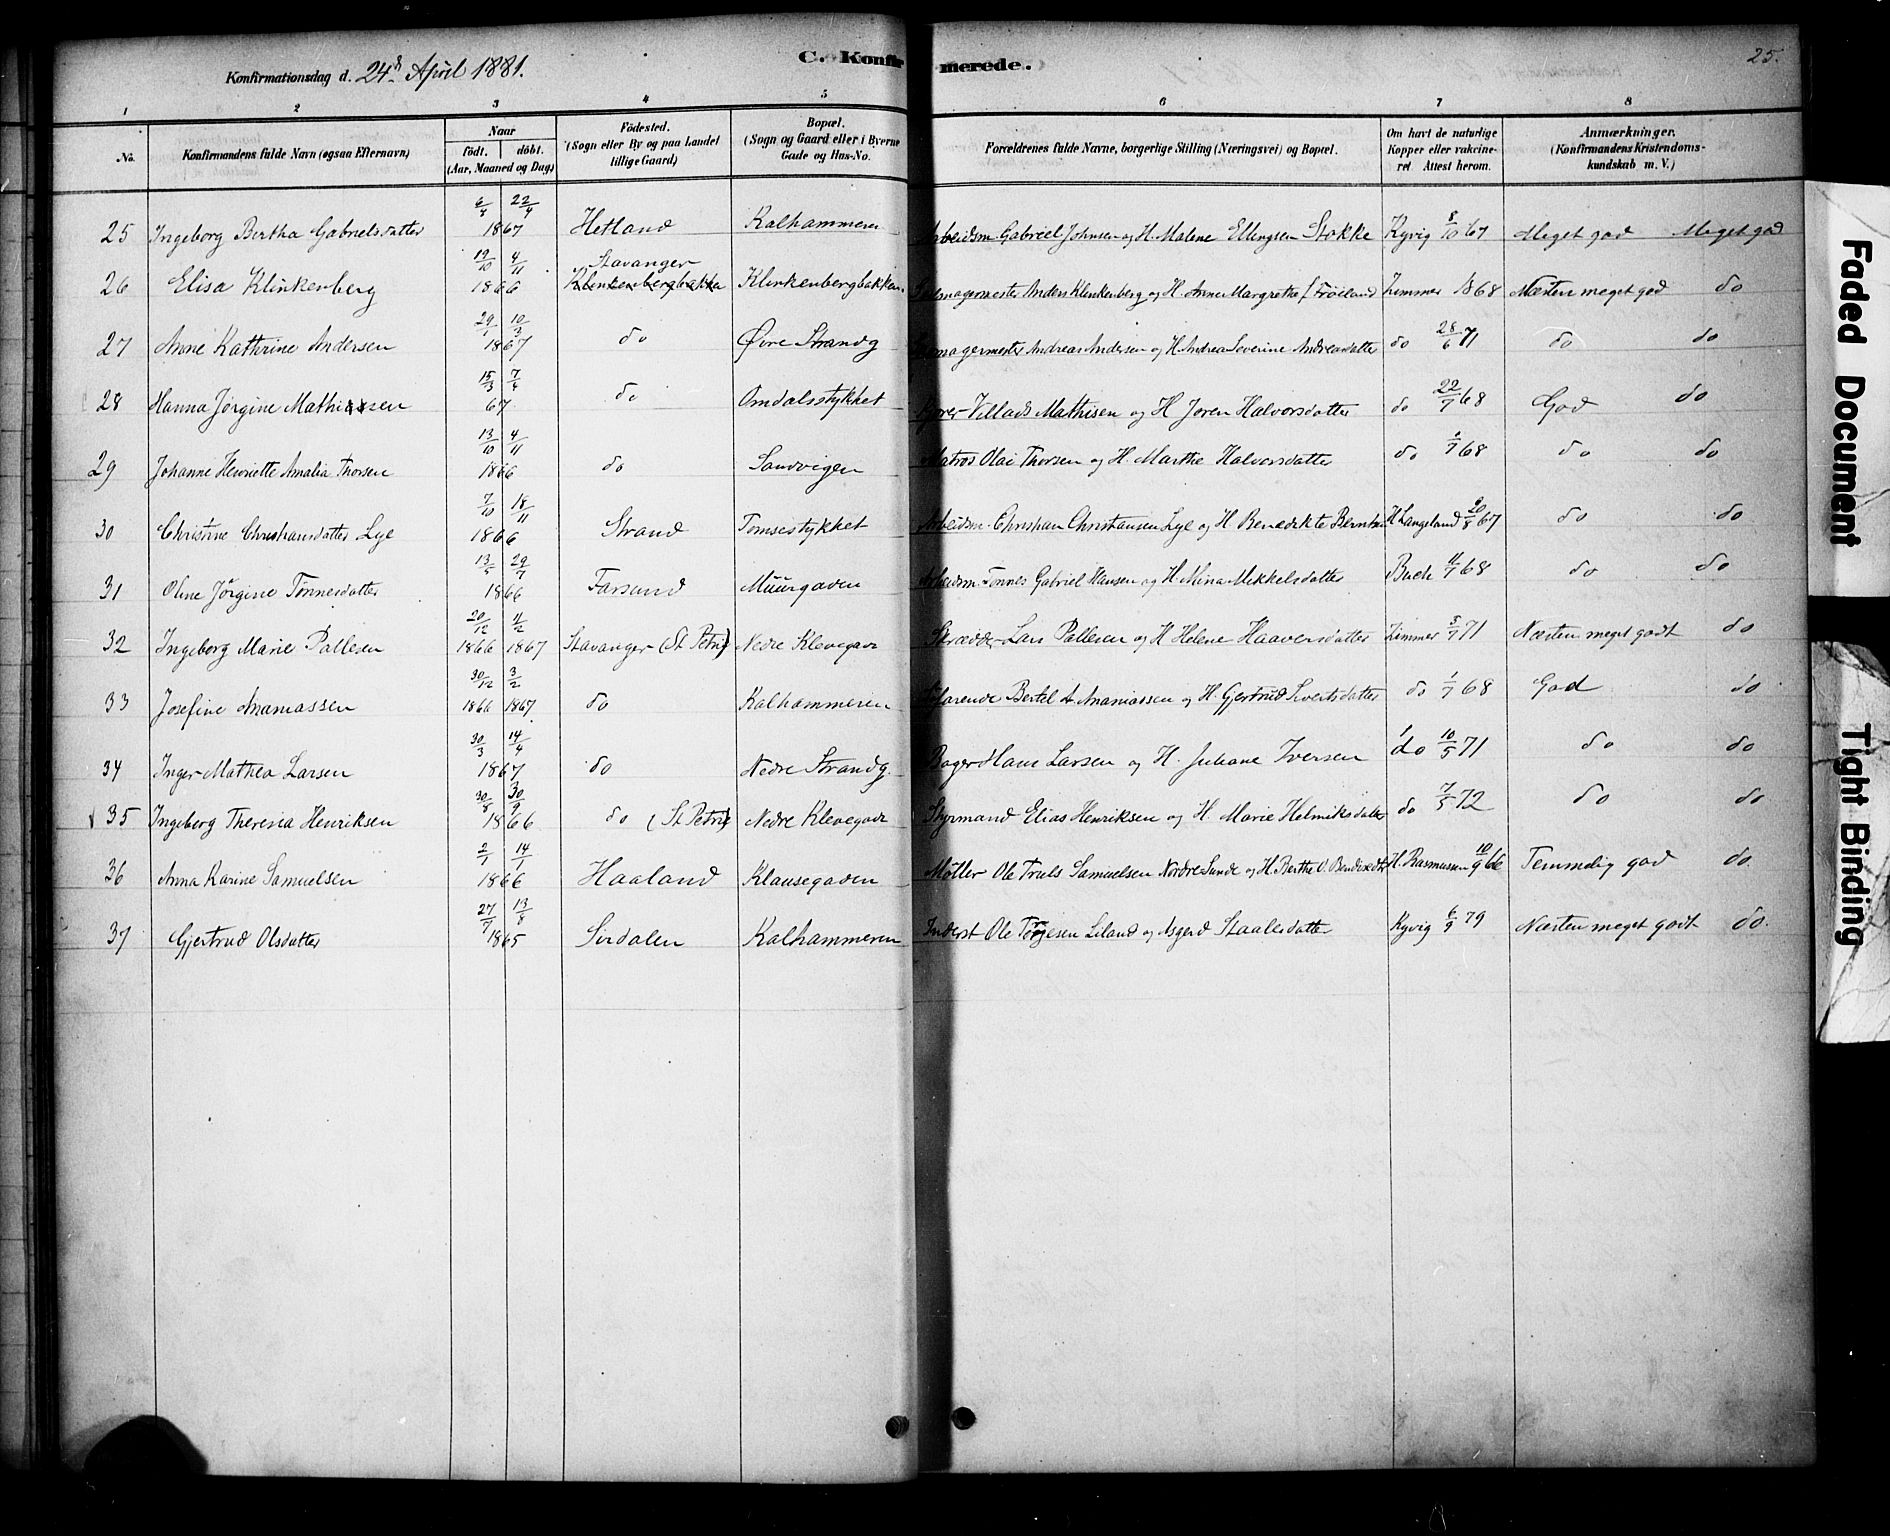 Konfirmationsdag d. 24de April 1881.
C. Konfirmerede.
25.
1 2 3 4 5 6 7 8
No.
Konfirmandens fulde Navn (ogsaa Efternavn)
Naar
födt. döbt.
(Aar, Maaned og Dag)
Födested.
(Sogn eller By og paa Landet
tillige Gaard)
Bopæl.
(Sogn og Gaard eller i Byerne
Gade og Hus-No.
Forældrenes fulde Navne, borgerlige Stilling (Næringsvei) og Bopæl.
Om havt de naturlige
Kopper eller vakcine-
ret Attest herom.
Anmærkninger.
(Konfirmandens Kristendoms-
kundskab m. V.)
25 Ingeborg Bertha Gabrielsdatter 6/4 22/4 1867 Hetland Kalhammeren Arbeidsm. Gabriel Johnsen og H. Malene Ellingsen Stokke Kyvig 8/10 67 Meget god Meget god
26 Elisa Klinkenberg 19/10 4/11 1866 Stavanger Klinkenbergbakken Klinkenbergbakken magermester Anders Klinkenberg og H. Anne Margrethe f Fröiland Zimmer 1868 Næsten meget god do
27 Anne Kathrine Andersen 29/1 10/3 1867 do Øvre Strandg magermester Andreas Andersen og H. Andrea Severine Andreasdatter do 28/6 71 do do
28 Hanna Jørgine Mathiasen 15/3 7/4 67 do Omdalsstykket Villads Mathisen og H Joren Halvorsdatter do 22/7 68 God do
29 Johanne Henriette Amalia Thorsen 13/10 4/11 1866 do Sandvigen Matros Olai Thorsen og H. Marthe Halvorsdatter do 1/7 68 do do
30 Christine Christiansdatter Lye 7/10 18/11 1866 Strand Tomsestykket Arbeidsm. Christian Christiansen Lye og H Benedikte Berntsen H Langeland 20/8 67 do do
31 Oline Jörgine Tönnesdatter 13/5 29/7 1866 Farsund Müürgaden Arbeidsm. Tönnes Gabriel Hansen og H. Mina Mikkelsdatter Buch 4/7 68 do do
32 Ingeborg Marie Pallesen 20/12 1866 11/2 1867 Stavanger (St Petri) Nedre Klevegade Skrædder Lars Pallesen og H Helene Haaversdatter Zimmer 5/7 71 Næsten meget godt do
33 Josefine Ananiassen 30/12 1866 3/2 1867 do Kalhammeren Sjöfarende Bertel A. Ananiassen og H. Gjertrud Sivertsdatter do 1/7 68 God do
34 Inger Mathea Larsen 30/3 14/4 1867 do Nedre Strandg. Bager Hans Larsen og H. Juliane Iversen do 10/5 71 do do
35 Ingeborg Theresia Henriksen 30/8 30/9 1866 do (St Petri) Nedre Klevegade Styrmand Elias Henriksen og H. Marie Helmiksdatter do 7/5 72 do do
36 Anna Karine Samuelsen 2/1 14/1 1866 Haaland Klausegaden Möller Ole Truls Samuelsen Nordre Sunde og H. Berthe O. Bendiksdtr H. Rasmussen 10/9 66 Temmelig god do.
37 Gjertrud Olsdatter 27/7 13/8 1865 Sirdalen Kalhammeren Inderst Ole Torjesen Liland og Asgerd Staalesdatter Kyvig 6/9 79 Næsten meget godt do.
Faded Document
Tight Binding